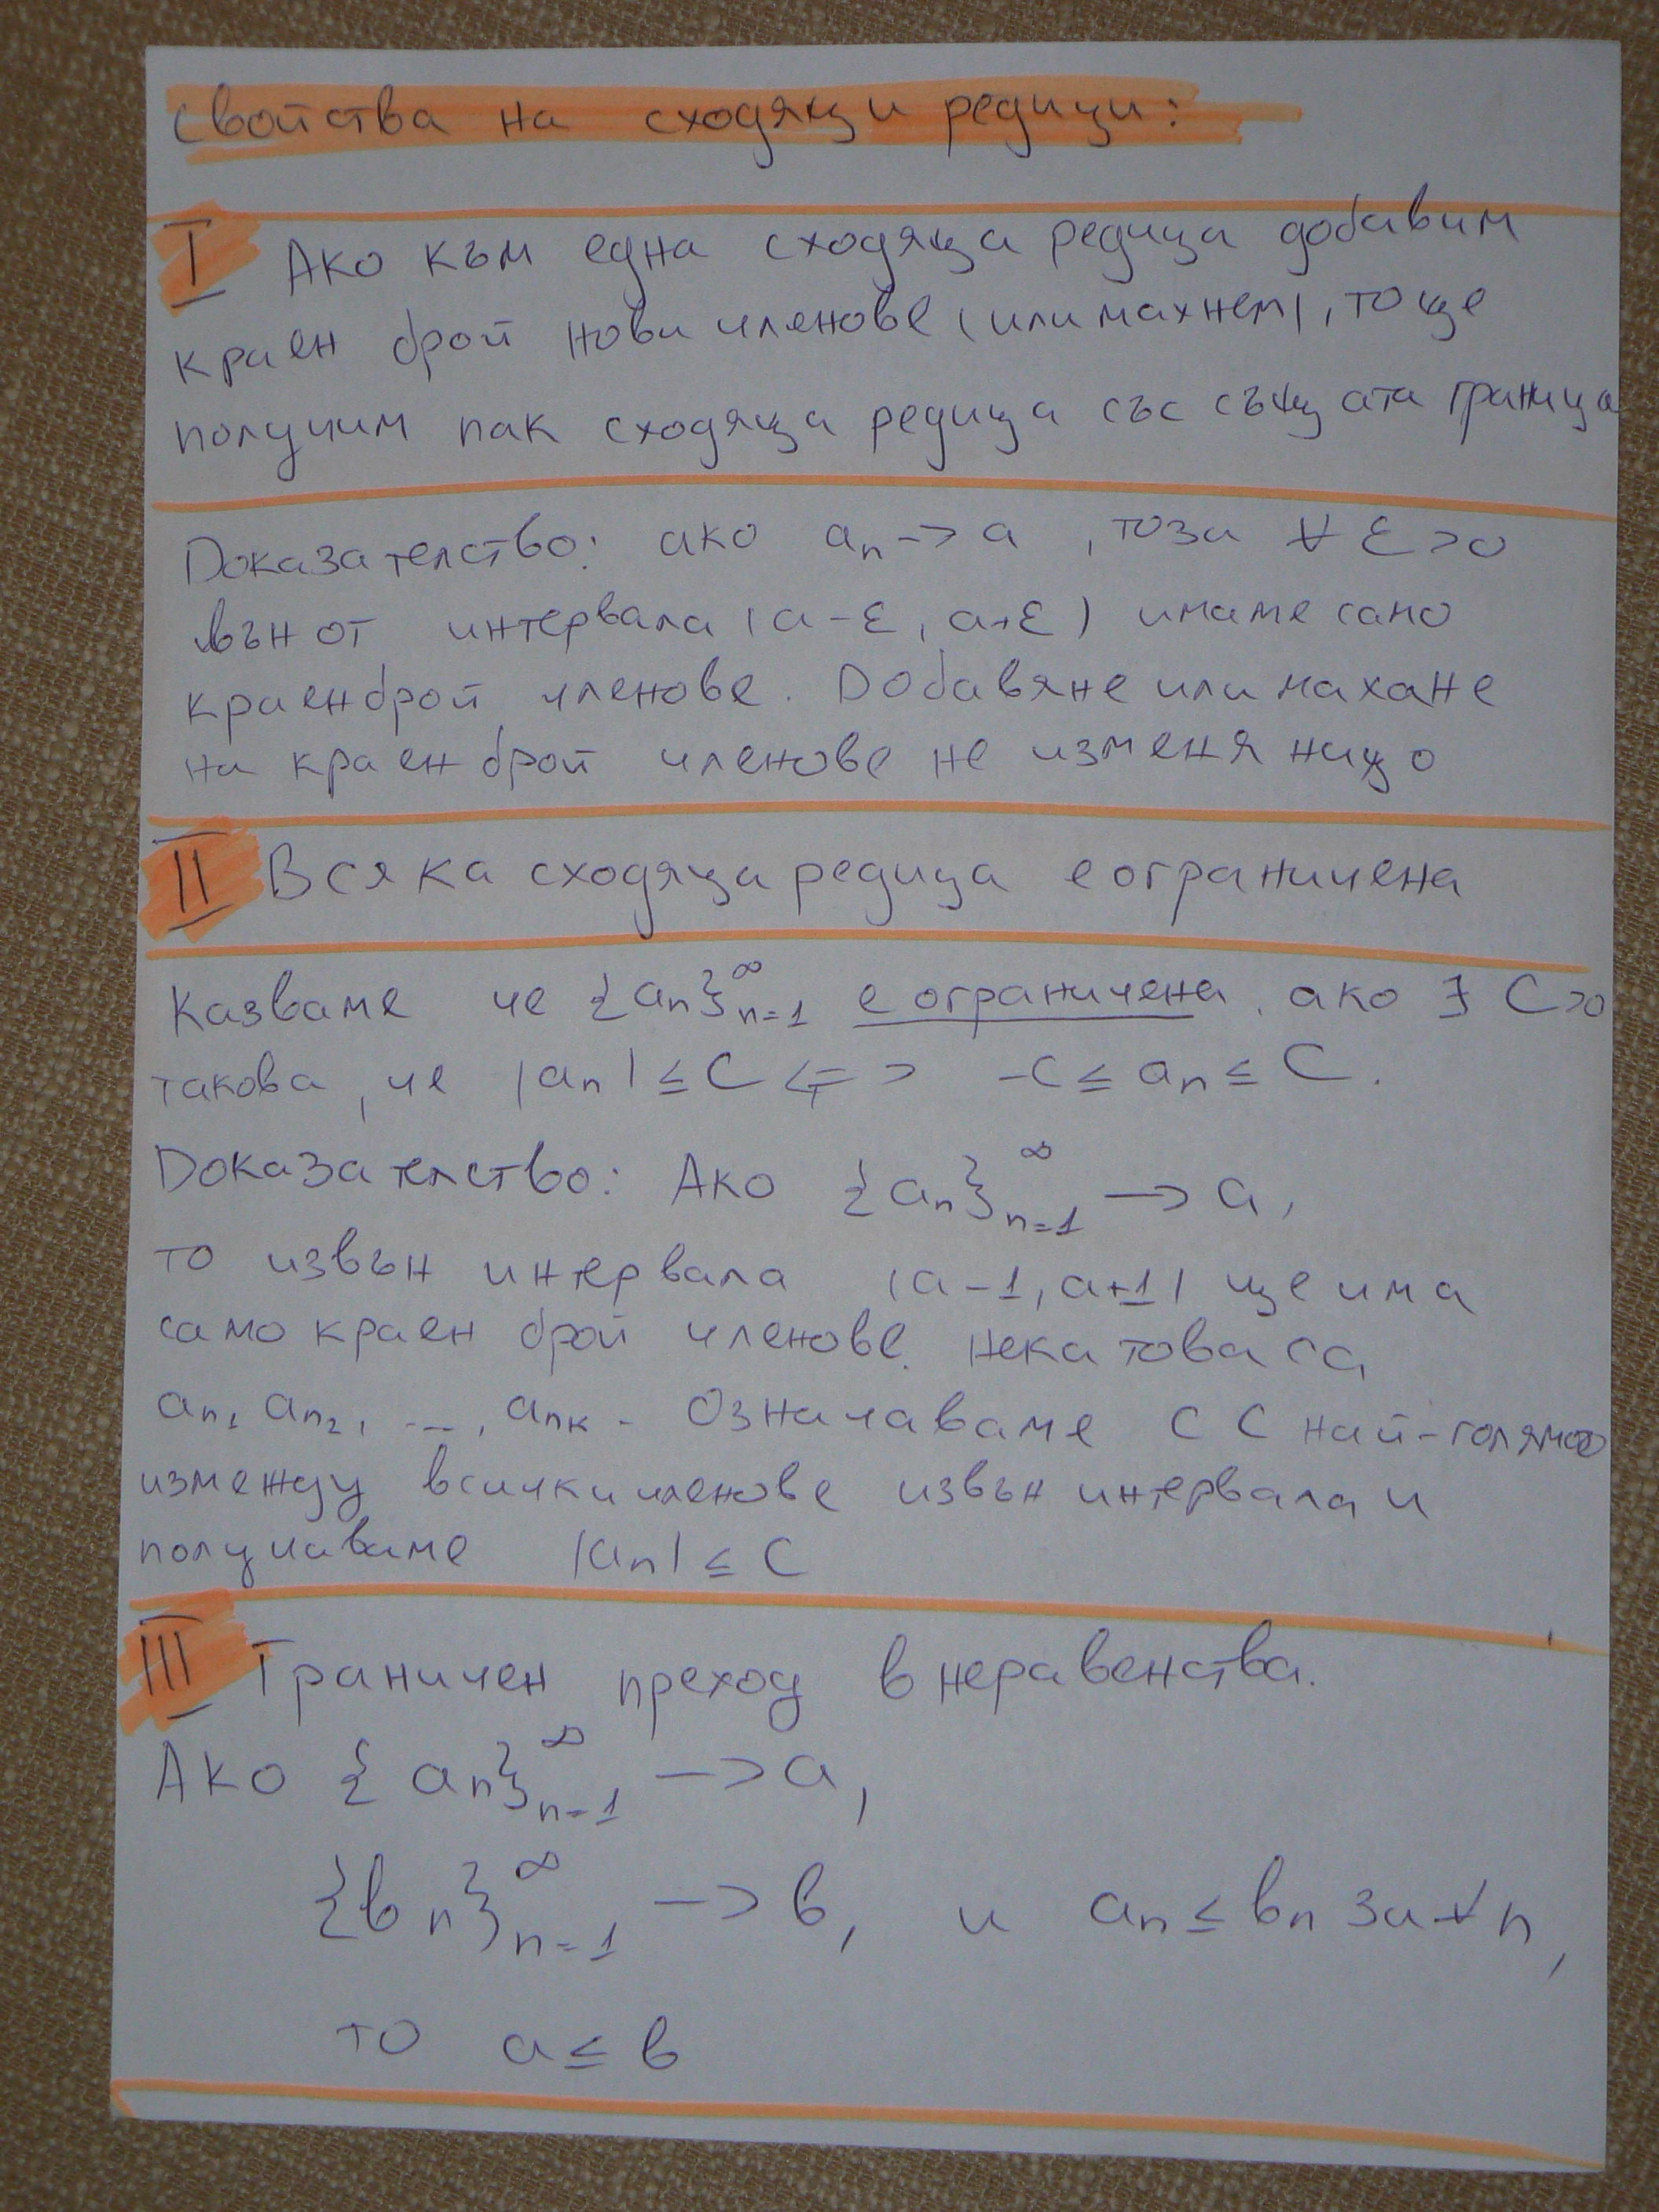 Свойства на сходящи редици:
I Ако към една сходяща редица добавим
краен брой нови членове (или махнем), то ще
получим пак сходяща редица със същата граница
Доказателство: ако aₙ -> a , тоза ∀ ε>0
вън от интервала (a-ε, a+ε) имаме само
краен брой членове. Добавяне или махане
на краен брой членове не изменя нищо
II Всяка сходяща редица е ограничена
Казваме че {aₙ}ₙ₌₁^∞ е ограничена, ако ∃ C>0
такова, че |aₙ| ≤ C <=> -C ≤ aₙ ≤ C.
Доказателство: Ако {aₙ}ₙ₌₁^∞ -> a,
то извън интервала (a-1, a+1) ще има
само краен брой членове. Нека това са
aₙ₁, aₙ₂, ..., aₙₖ. Означаваме с C най-голямото
измежду всички членове извън интервала и
получаваме |aₙ| ≤ C
III Граничен преход в неравенства.
Ако {aₙ}ₙ₌₁^∞ -> a,
{bₙ}ₙ₌₁^∞ -> b, и aₙ ≤ bₙ за ∀ n,
то a ≤ b